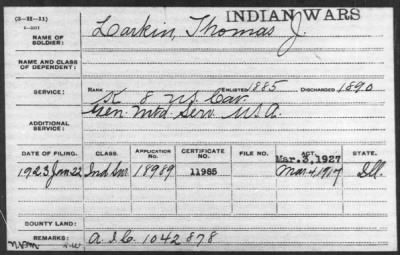 (3-III-11)
INDIAN WARS
NAME OF SOLDIER: Larkin, Thomas J.
NAME AND CLASS OF DEPENDENT:
SERVICE: RANK ENLISTED 1885 DISCHARGED 1890
K 8 U.S. Cav.
ADDITIONAL SERVICE: Gen. Mtd. Serv. U.S.A.
DATE OF FILING. CLASS. APPLICATION NO. CERTIFICATE NO. FILE NO. ACT. STATE.
Mar. 3, 1927
1923 Jan 22 Ind Sur. 18989 11985 Mar 4 1917 Ill.
BOUNTY LAND:
REMARKS: 1042878